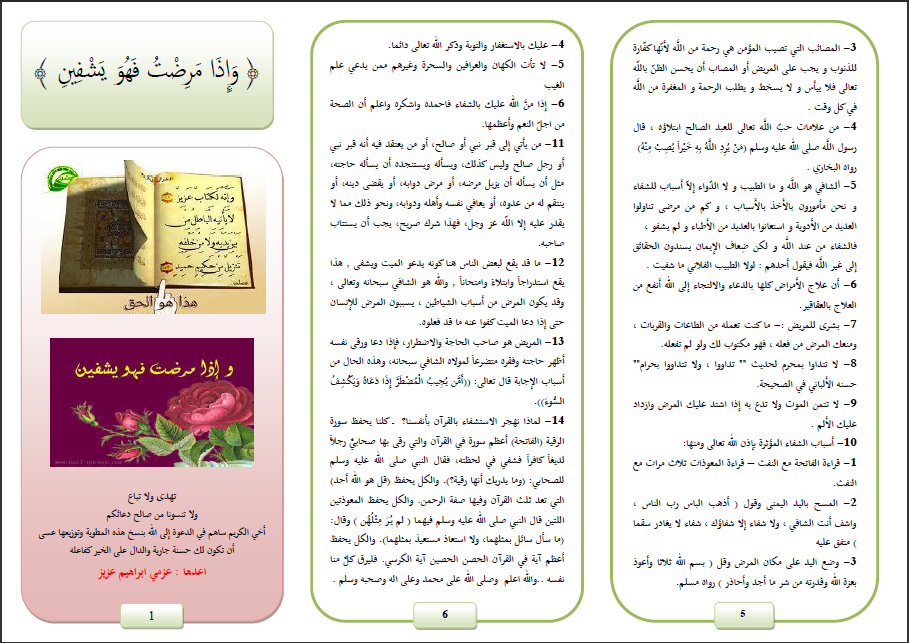 ﴿ وَإِذَا مَرِضْتُ فَهُوَ يَشْفِينِ ﴾
وإنه لكتاب عزيز
لا يأتيه الباطل من
بين يديه ولا من خلفه
تنزيل من حكيم حميد
فصلت
هذا هو الحق
و إذا مرضت فهو يشفين
تهدى ولا تباع
ولا تنسونا من صالح دعائكم
أخي الكريم ساهم في الدعوة إلى الله بنسخ هذه المطوية وتوزيعها عسى
أن تكون لك حسنة جارية والدال على الخير كفاعله
اعدها : عزمي ابراهيم عزيز
1
4– عليك بالاستغفار والتوبة وذكر الله تعالى دائما.
5– لا تأت الكهان والعرافين والسحرة وغيرهم ممن يدعي علم
الغيب
6– إذا منَّ الله عليك بالشفاء فاحمده واشكره واعلم أن الصحة
من اجلّ النعم وأعظمها.
11– من يأتي إلى قبر نبي أو صالح، أو من يعتقد فيه أنه قبر نبي
أو رجل صالح وليس كذلك، ويسأله ويستنجده أن يسأله حاجته،
مثل أن يسأله أن يزيل مرضه، أو مرض دوابه، أو يقضى دينه، أو
ينتقم له من عدوه، أو يعافي نفسه وأهله ودوابه، ونحو ذلك مما لا
يقدر عليه إلا اللّه عز وجل، فهذا شرك صريح، يجب أن يستتاب
صاحبه.
12– ما قد يقع لبعض الناس هنا كونه يدعو الميت ويشفى , هذا
يقع استدراجاً وابتلاءً وامتحاناً , والله هو الشافي سبحانه وتعالى ،
وقد يكون المرض من أسباب الشياطين ، يسببون المرض للإنسان
حتى إذا دعا الميت كفوا عنه ما قد فعلوه.
13– المريض هو صاحب الحاجة والاضطرار، فإذا دعا ورقى نفسه
أظهر حاجته وفقره متضرعاً لمولاه الشافي سبحانه، وهذه الحال من
أسباب الإجابة قال تعالى: ((أَمَّن يُجِيبُ الْمُضْطَرَّ إِذَا دَعَاهُ وَيَكْشِفُ
السُّوءَ)).
14– لماذا نهجر الاستشفاء بالقرآن بأنفسنا؟ - كلنا يحفظ سورة
الرقية (الفاتحة) أعظم سورة في القرآن والتي رقى بها صحابيٌّ رجلاً
لديغاً كافراً فشفي في لحظته، فقال النبي صلى الله عليه وسلم
للصحابي: (وما يدريك أنها رقية؟). والكل يحفظ (قل هو الله أحد)
التي تعد ثلث القرآن وفيها صفة الرحمن. والكل يحفظ المعوذتين
اللتين قال النبي صلى الله عليه وسلم فيهما ( لم يُرَ مِثْلُهُن ) وقال:
(ما سأل سائل بمثلهما، ولا استعاذ مستعيذ بمثلهما). والكل يحفظ
أعظم آية في القرآن الحصن الحصين آية الكرسي. فليرق كلٌ منا
نفسه ..والله اعلم وصلى الله على محمد وعلى اله وصحبه وسلم .
6
3– المصائب التي تصيب المؤمن هي رحمة من اللَّه لأنّها كفّارة
للذنوب و يجب على المريض أو المصاب أن يحسن الظنّ باللّه
تعالى فلا ييأس و لا يسخط و يطلب الرحمة و المغفرة من اللَّه
في كل وقت .
4– من علامات حبّ اللَّه تعالى للعبد الصالح ابتلاؤه ، قال
رسول اللَّه صلى الله عليه وسلم (مَنْ يُرِدِ اللَّهُ بِهِ خَيْراً يُصِبْ مِنْهُ)
رواه البخاري .
5– الشافي هو اللَّه و ما الطبيب و لا الدّواء إلاّ أسباب للشفاء
و نحن مأمورون بالأخذ بالأسباب ، و كم من مرضى تناولوا
العديد من الأدوية و استعانوا بالعديد من الأطباء و لم يشفو ،
فالشفاء من عند اللَّه و لكن ضعاف الإيمان يسندون الحقائق
إلى غير اللَّه فيقول أحدهم : لولا الطبيب الفلاني ما شفيت .
6– أن علاج الأمراض كلها بالدعاء والالتجاء إلى الله أنفع من
العلاج بالعقاقير.
7– بشرى للمريض :– ما كنت تعمله من الطاعات والقربات ،
ومنعك المرض من فعله ، فهو مكتوب لك ولو لم تفعله.
8– لا تتداوا بمحرم لحديث "" تداووا ، ولا تتداووا بحرام""
حسنه الألباني في الصحيحة.
9– لا تتمن الموت ولا تدع به إذا اشتد عليك المرض وازداد
عليك الألم .
10– أسباب الشفاء المؤثرة بإذن الله تعالى ومنها:
1– قراءة الفاتحة مع النفث – قراءة المعوذات ثلاث مرات مع
النفث.
2– المسح باليد اليمنى وقول ( أذهب الباس رب الناس ،
واشف أنت الشافي ، ولا شفاء إلا شفاؤك ، شفاء لا يغادر سقما
) متفق عليه
3– وضع اليد على مكان المرض وقل ( بسم الله ثلاثا وأعوذ
بعزة الله وقدرته من شر ما أجد وأحاذر ) رواه مسلم.
5